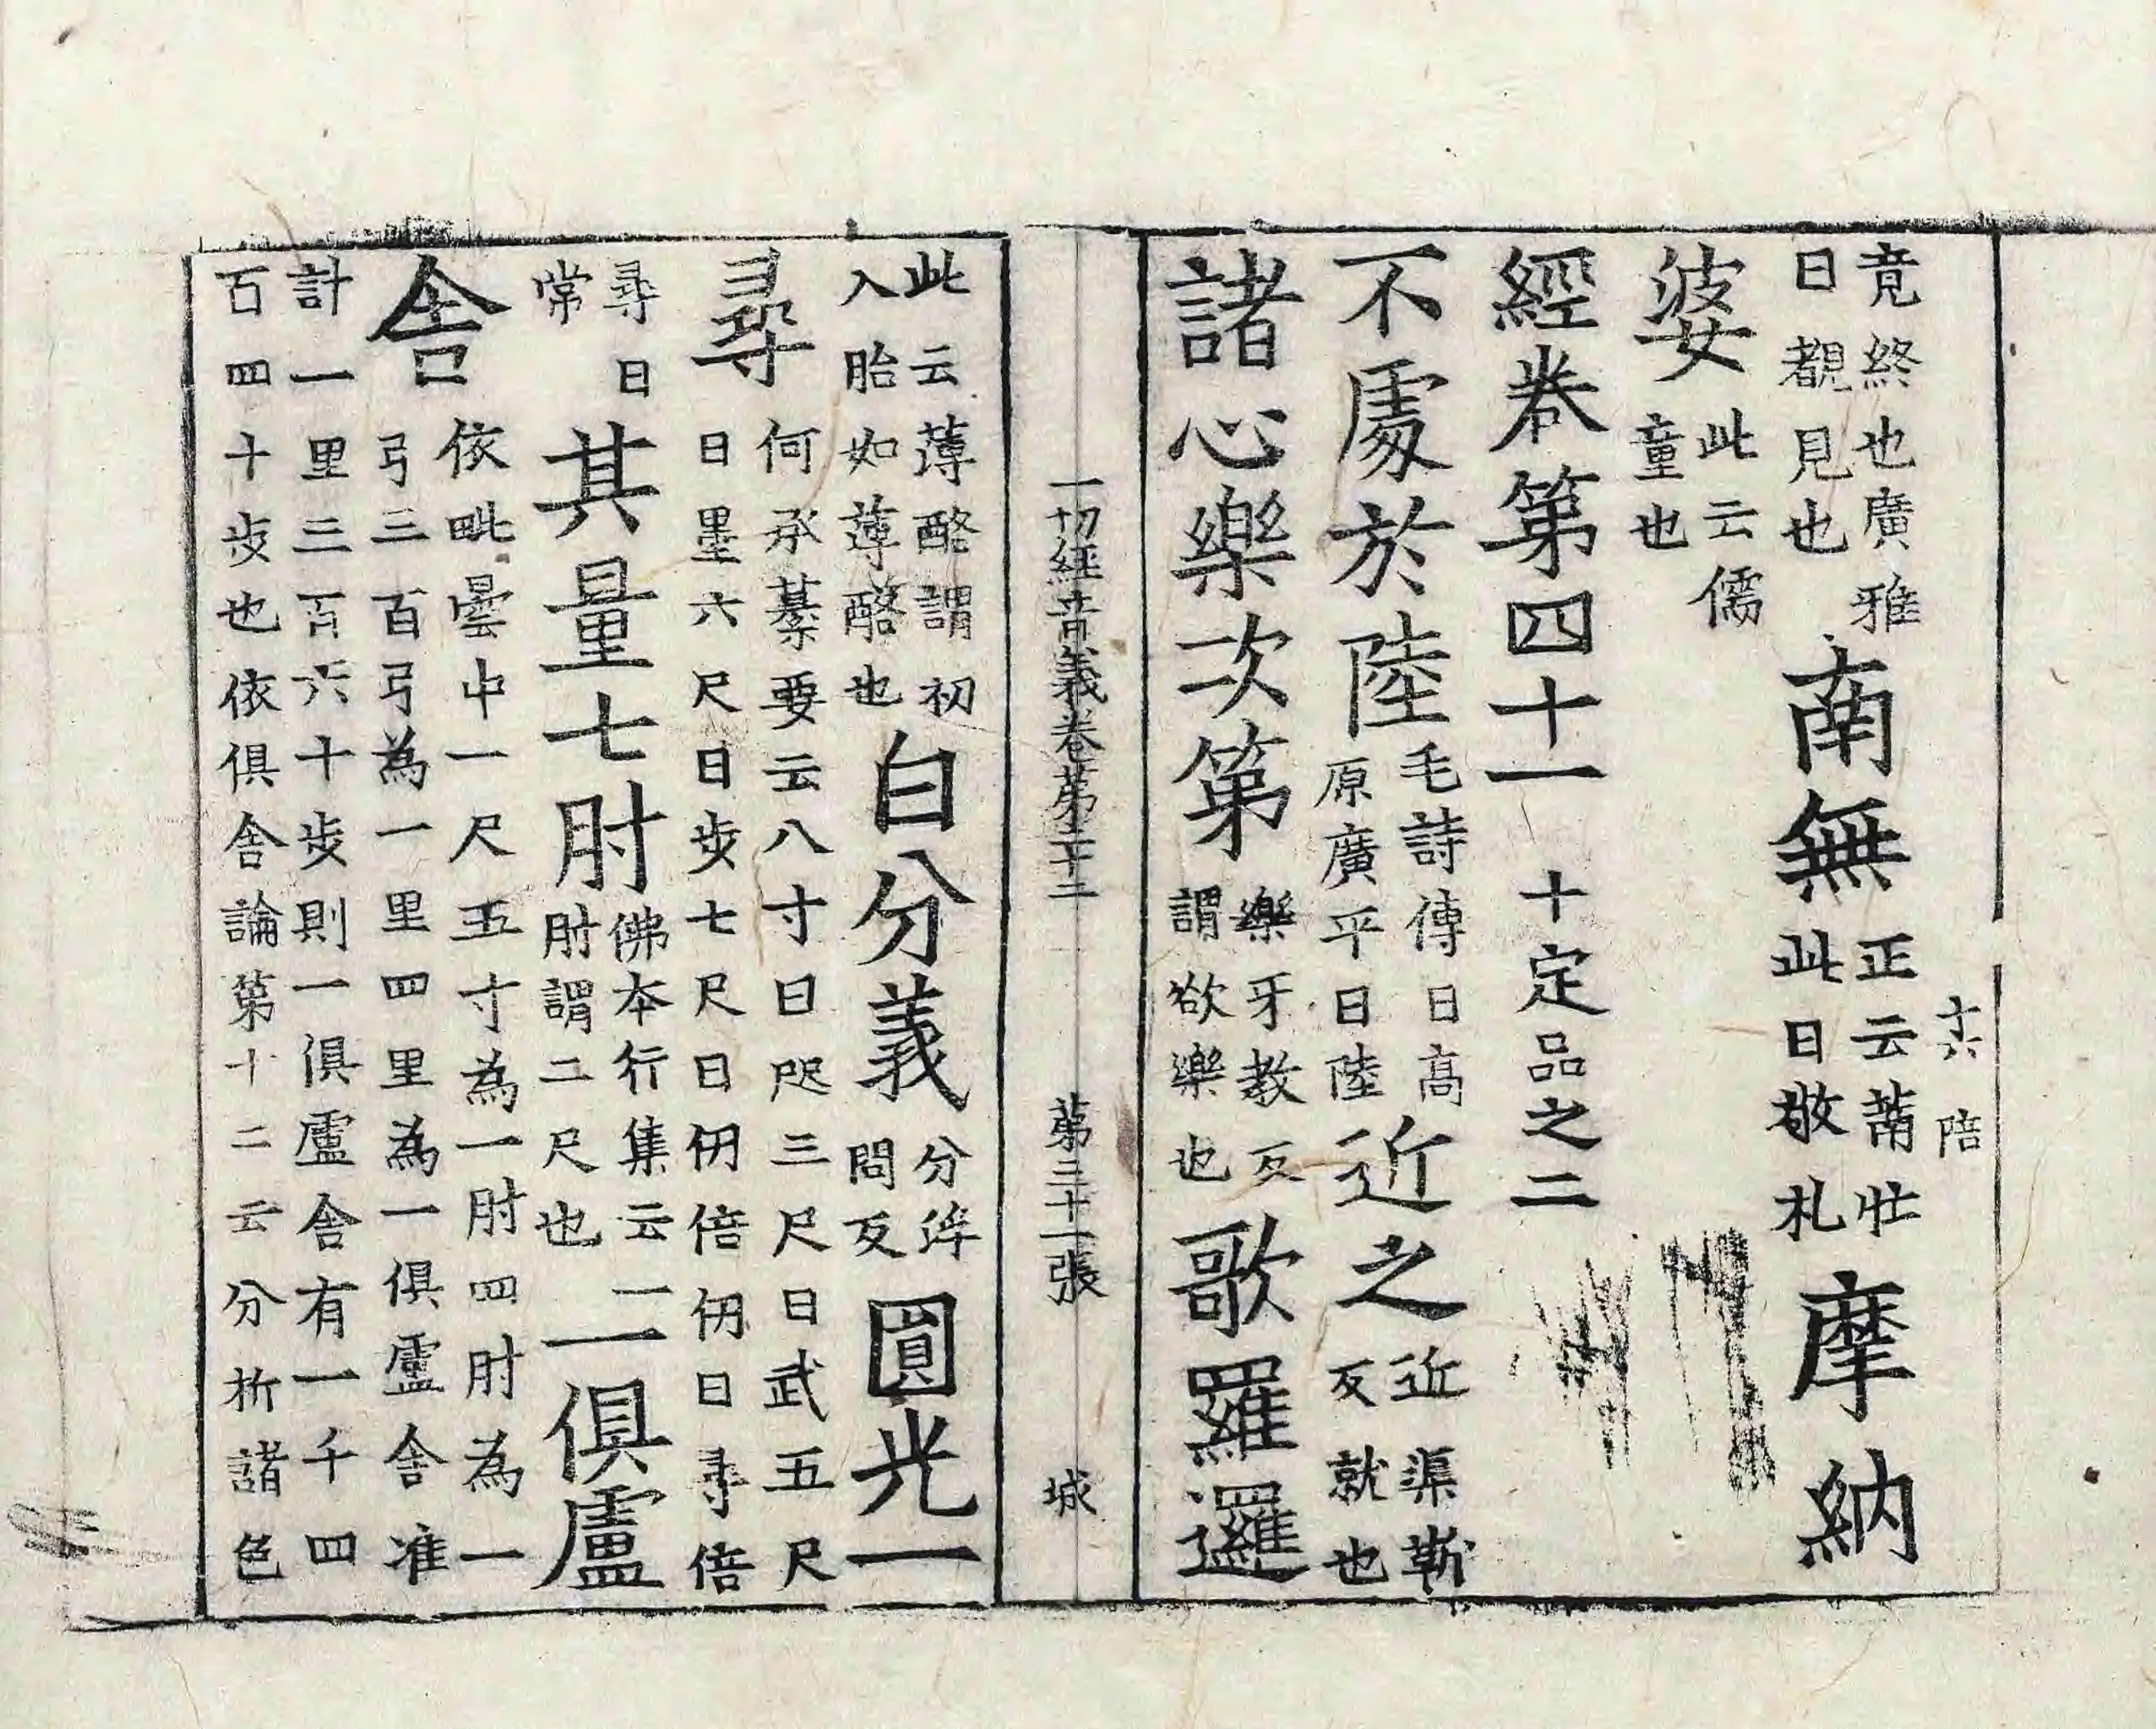 竟終也廣雅
曰覩見也
南無
正云䓣牡
此曰敬札
摩納
婆
此云儒
童也
經卷第四十一 十定品之二
不處於陸
毛詩傳曰高
原廣平曰陸
近之
近渠靳
反就也
諸心樂次第
樂牙教反
謂欲樂也
歌羅邏
一切經音義卷第二十二 第三十一張 城
此云薄酪謂初
入胎如薄酪也
白分義
分𨒌
問反
圓光一
尋
何承纂要云八寸曰咫三尺曰武五尺
曰墨六尺曰步七尺曰仞倍仞曰尋倍
尋曰
常
其量七肘
佛本行集云一
肘謂二尺也
一俱盧
舍
依毗曇中一尺五寸為一肘四肘為一
弓三百弓為一里四里為一俱盧舍准
計一里三百六十步則一俱盧舍有一千四
百四十步也依俱舍論第十二云分析諸色
十六 陪